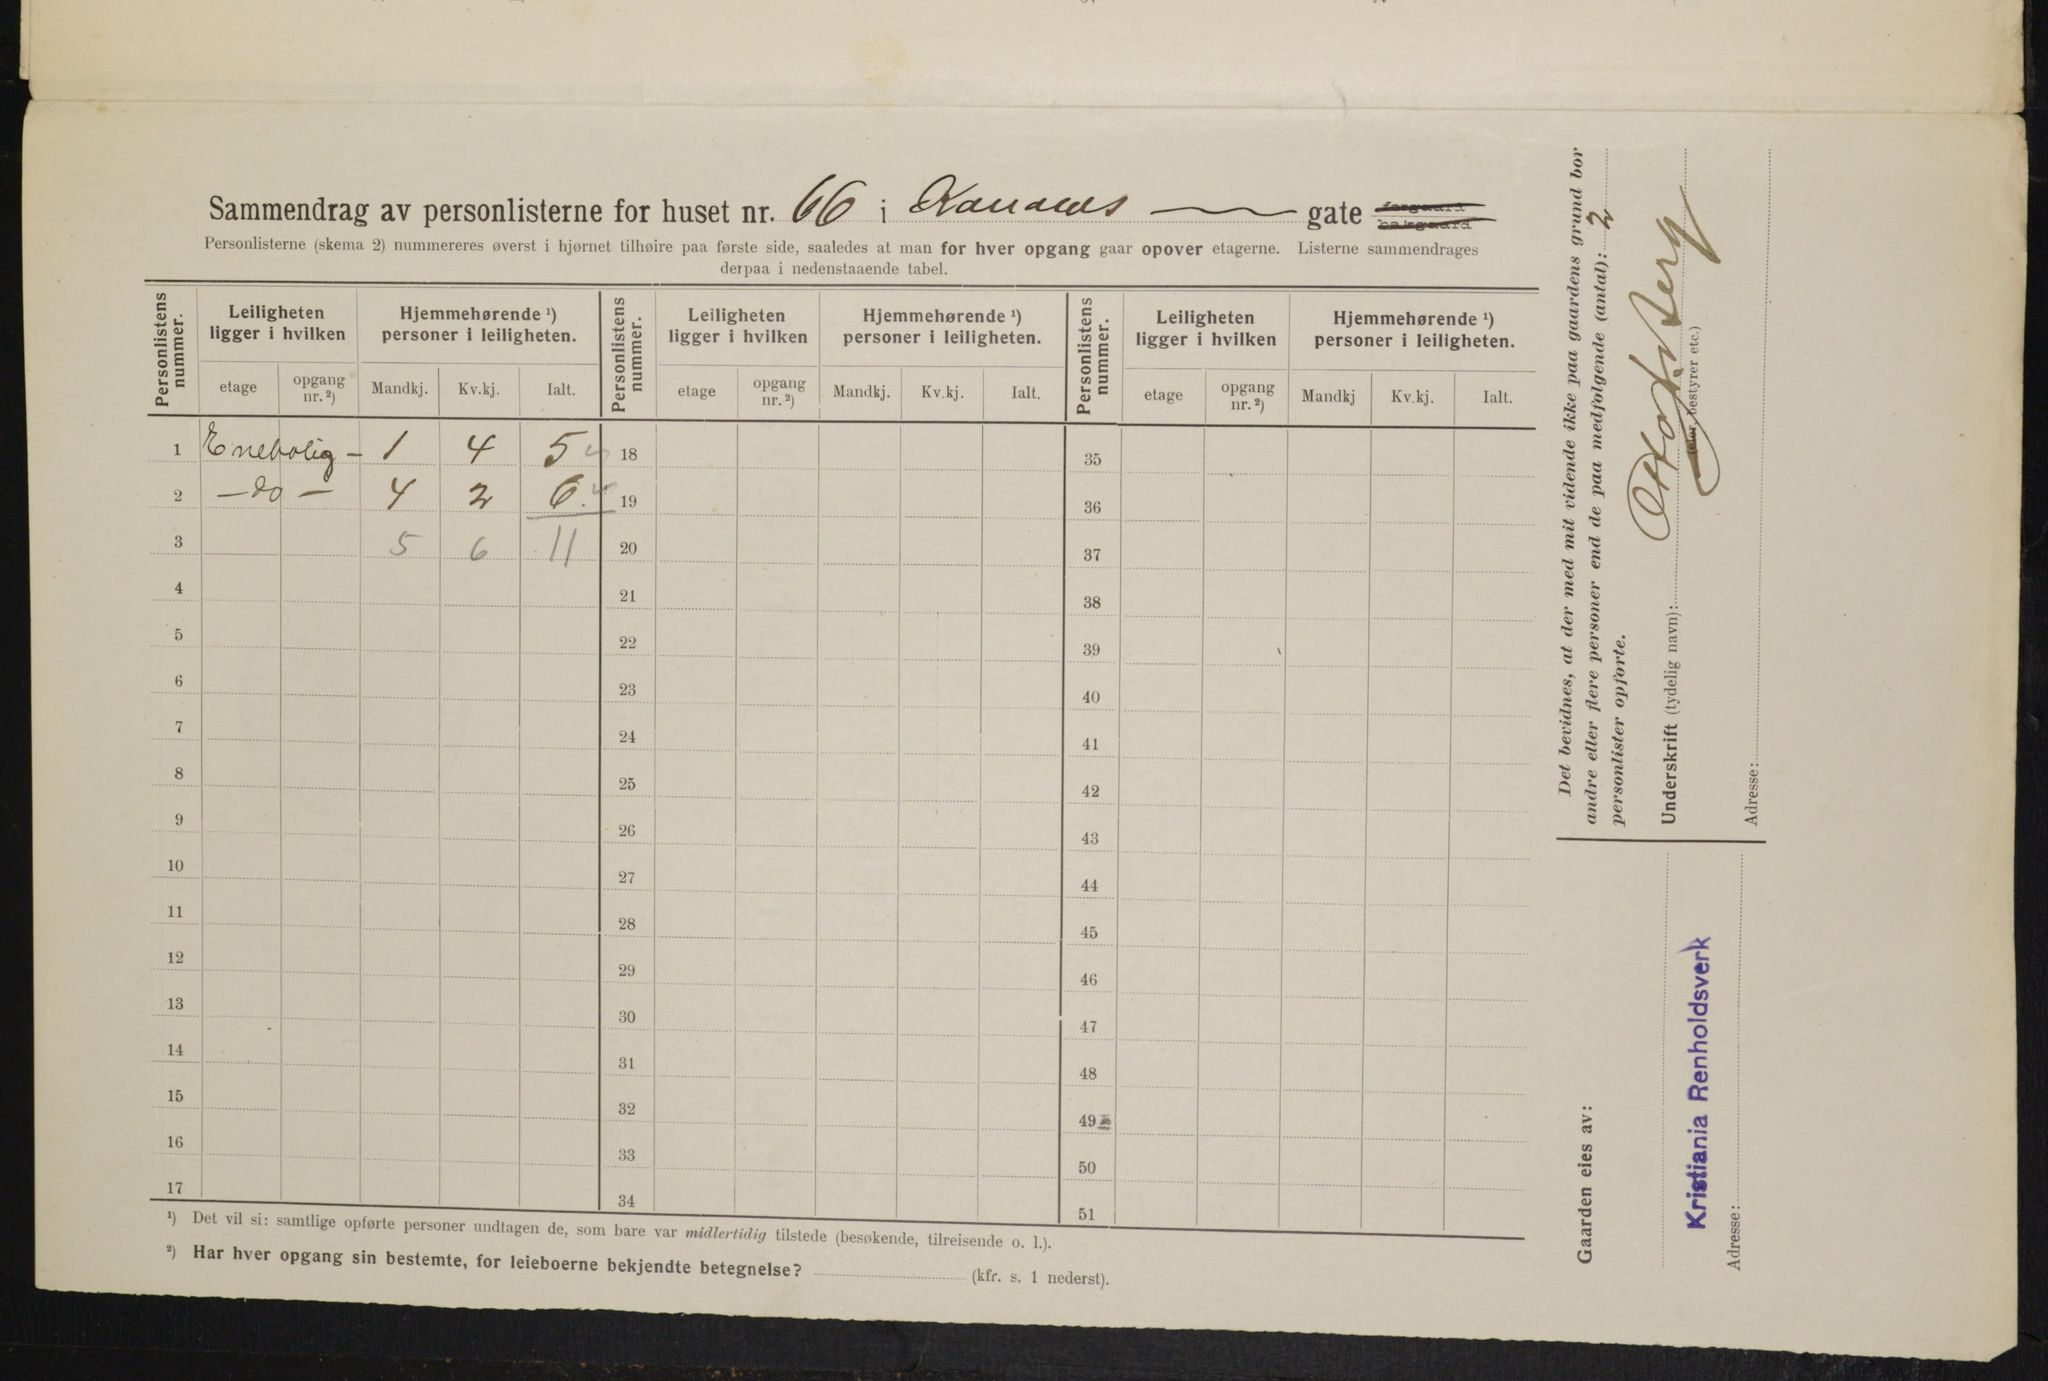 Sammendrag av personlisterne for huset nr. 66 i gate forgaard
bakgaard
Personlisterne (skema 2) nummereres øverst i hjørnet tilhøire paa første side, saaledes at man for hver opgang gaar opover etagerne. Listerne sammendrages
derpaa i nedenstaaende tabel.
Personlistens nummer. Leiligheten ligger i hvilken Hjemmehørende ¹) personer i leiligheten. Personlistens nummer. Leiligheten ligger i hvilken Hjemmehørende ¹) personer i leiligheten. Personlistens nummer. Leiligheten ligger i hvilken Hjemmehørende ¹) personer i leiligheten.
etage opgang nr. ²) Mandkj. Kv.kj. Ialt. etage opgang nr. ²) Mandkj. Kv.kj. Ialt. etage opgang nr. ²) Mandkj Kv.kj. Ialt.
1 Enebolig – 1 4 5 18 35
2 – do – 4 2 6. 19 36
3 5 6 11 20 37
4 21 38
5 22 39
6 23 40
7 24 41
8 25 42
9 26 43
10 27 44
11 28 45
12 29 46
13 30 47
14 31 48
15 32 49
16 33 50
17 34 51
¹) Det vil si: samtlige opførte personer undtagen de, som bare var midlertidig tilstede (besøkende, tilreisende o. l.).
²) Har hver opgang sin bestemte, for leieboerne bekjendte betegnelse? (kfr. s. 1 nederst).
Det bevidnes, at der med mit vidende ikke paa gaardens grund bor
andre eller flere personer end de paa medfølgende (antal): 2
personlister opførte.
Underskrift (tydelig navn):
(eier, bestyrer etc.)
Adresse:
Gaarden eies av:
Kristiania Renholdsverk
Adresse: